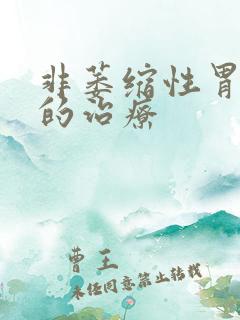 非萎缩性胃
的治疗
曹王
未经同意禁止转载